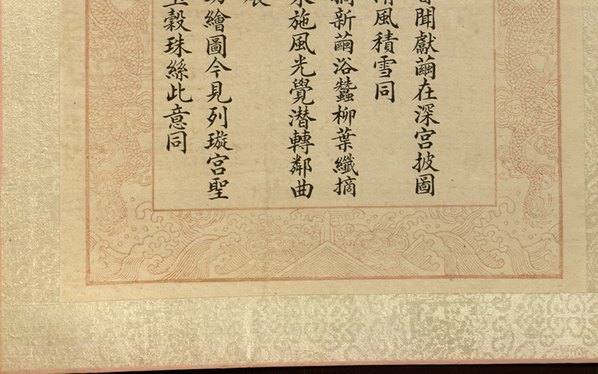 聞獻繭在深宮披圖
清風積雪同
新繭浴蠶柳葉纖摘
施風光覺潛轉鄰曲
繪圖今見列璇宮聖
穀珠絲此意同